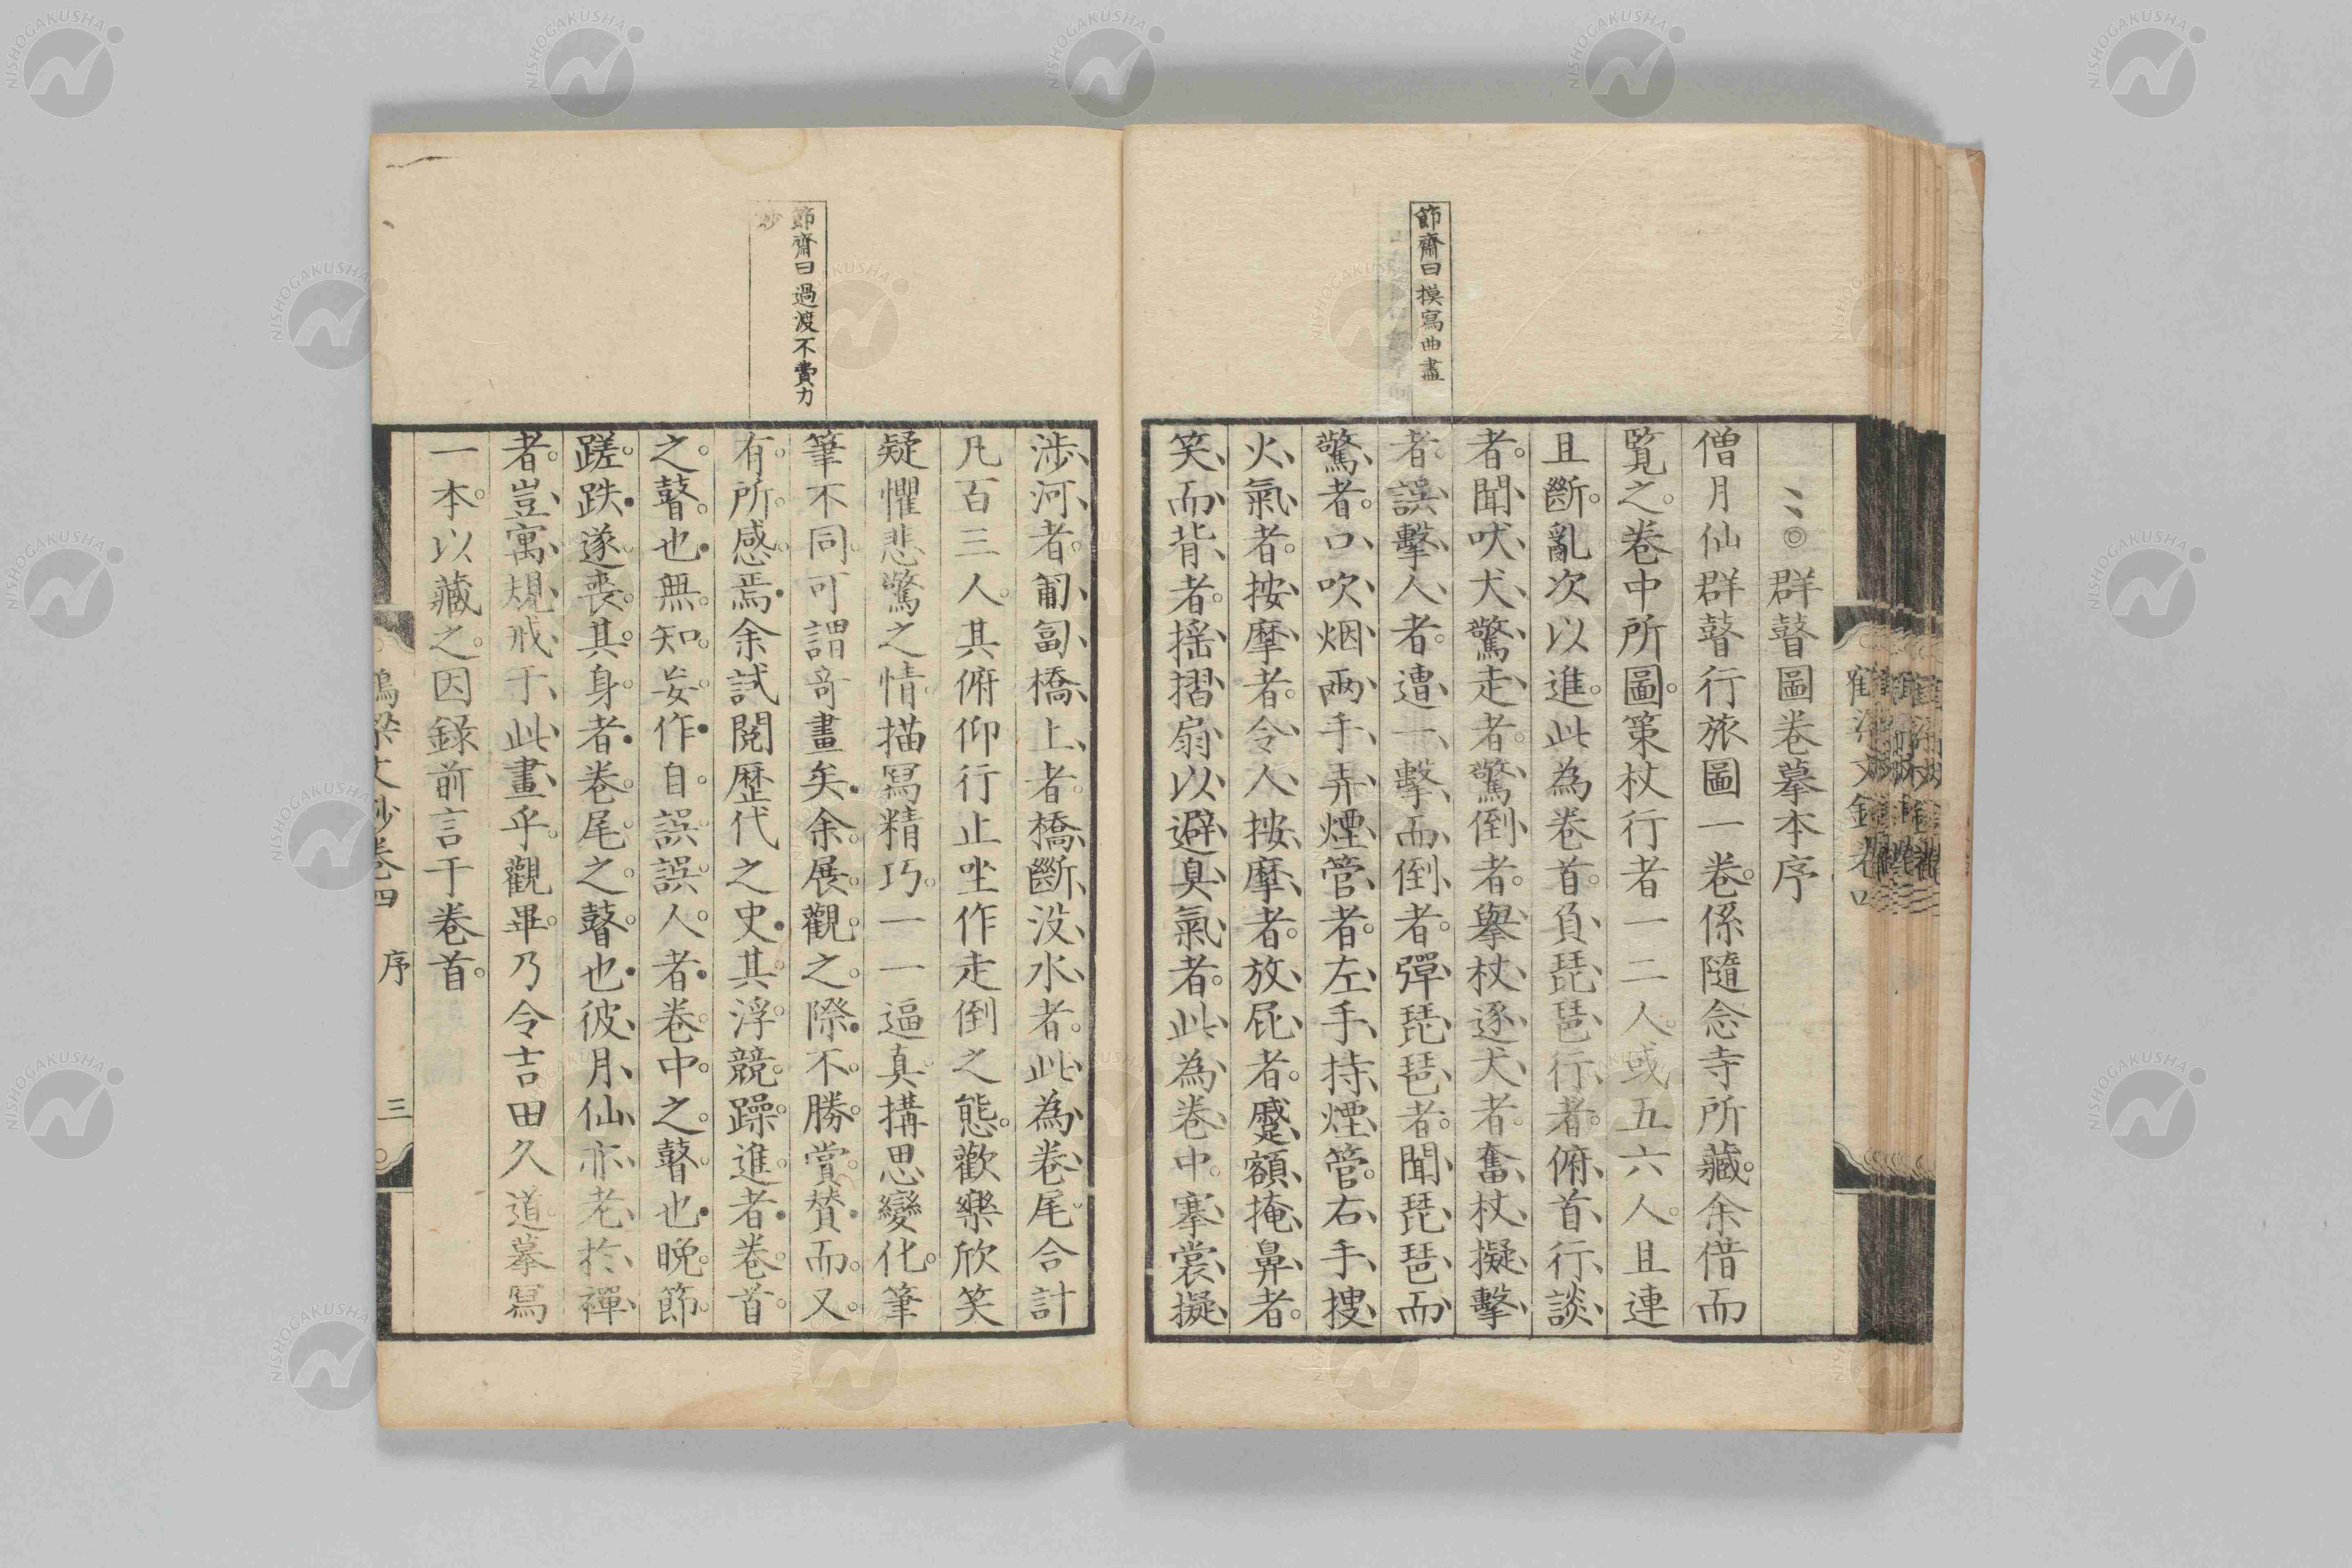 節齋曰摸寫曲盡
群瞽圖卷摹本序
僧月仙群瞽行旅圖一卷係隨念寺所藏余借而
覧之卷中所圖策杖行者一二人或五六人且連
且斷亂次以進此為卷首負琵琶行者俯首行談
者聞吠犬驚走者驚倒者擧杖逐犬者奮杖擬擊
者誤擊人者遭一擊而倒者彈琵琶者聞琵琶而
驚者口吹烟兩手弄煙管者左手持煙管右手捜
火氣者按摩者令人按摩者放屁者蹙額掩鼻者
笑而背者揺摺扇以避臭氣者此為卷中搴裳擬
節齋曰過渡不費力
妙
涉河者匍匐橋上者橋斷没水者此為卷尾合計
凡百三人其俯仰行止坐作走倒之態歡樂欣笑
疑懼悲驚之情描冩精巧一一逼真搆思變化筆
筆不同可謂奇畫矣余展觀之際不勝賞賛而又
有所感焉余試閲歴代之史其浮競躁進者卷首
之瞽也無知妄作自誤誤人者卷中之瞽也晩節
蹉跌遂喪其身者卷尾之瞽也彼月仙亦老於禪
者豈寓規戒于此畫乎觀畢乃令吉田久道摹冩
一本以藏之因錄前言于卷首
文鈔卷四 序 三
NISHOGAKUSHA